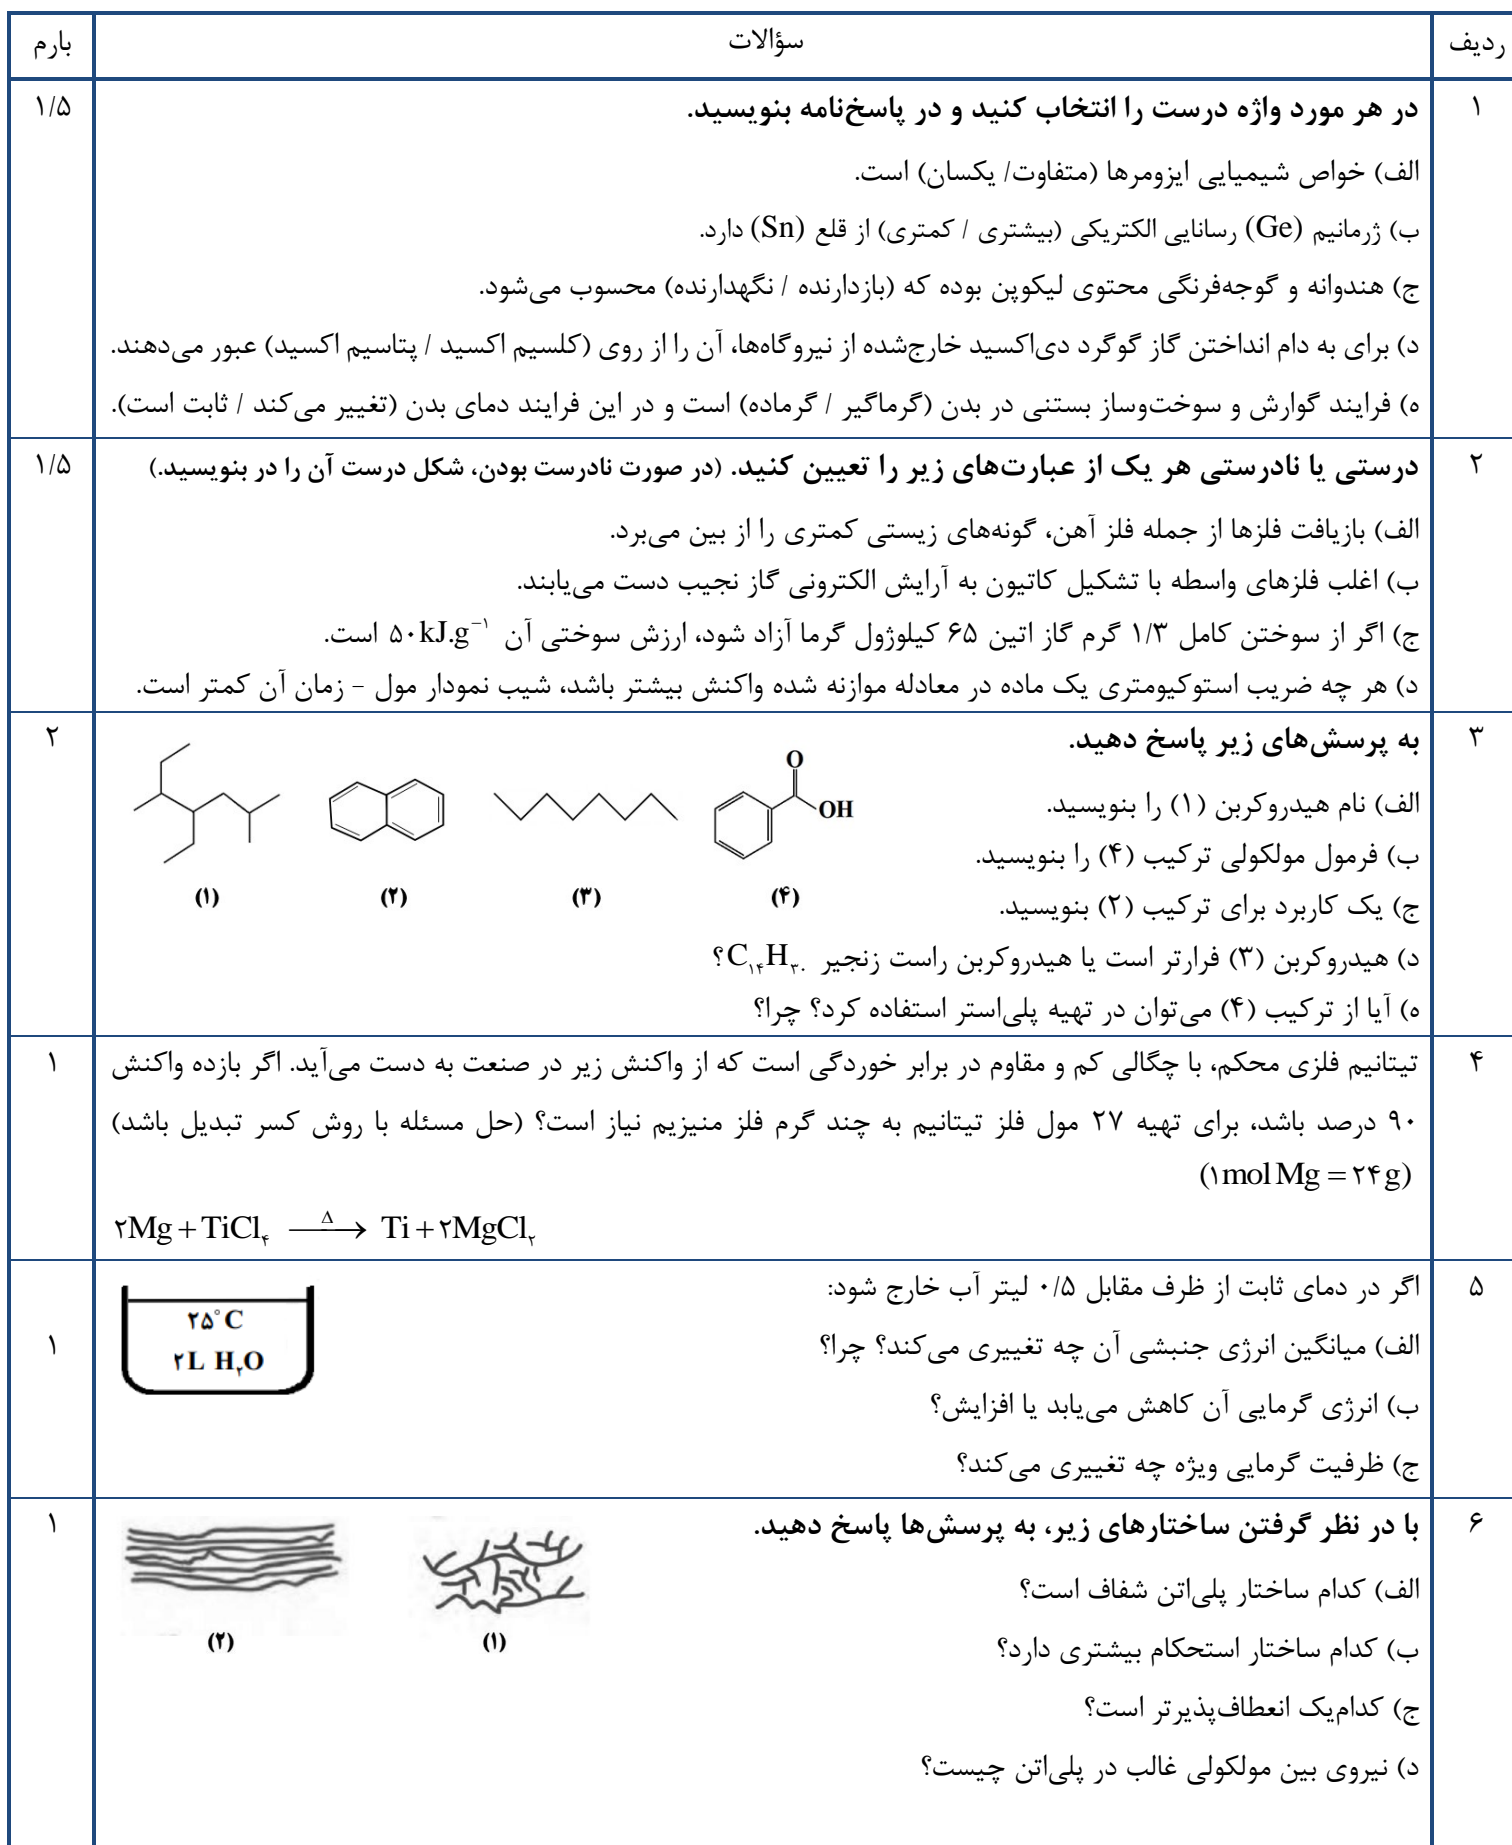 ردیف سؤالات بارم
۱ در هر مورد واژه درست را انتخاب کنید و در پاسخ‌نامه بنویسید. ۱/۵
الف) خواص شیمیایی ایزومرها (متفاوت/ یکسان) است.
ب) ژرمانیم (Ge) رسانایی الکتریکی (بیشتری / کمتری) از قلع (Sn) دارد.
ج) هندوانه و گوجه‌فرنگی محتوی لیکوپن بوده که (بازدارنده / نگهدارنده) محسوب می‌شود.
د) برای به دام انداختن گاز گوگرد دی‌اکسید خارج‌شده از نیروگاه‌ها، آن را از روی (کلسیم اکسید / پتاسیم اکسید) عبور می‌دهند.
ه) فرایند گوارش و سوخت‌وساز بستنی در بدن (گرماگیر / گرماده) است و در این فرایند دمای بدن (تغییر می‌کند / ثابت است).
۲ درستی یا نادرستی هر یک از عبارت‌های زیر را تعیین کنید. (در صورت نادرست بودن، شکل درست آن را در بنویسید.) ۱/۵
الف) بازیافت فلزها از جمله فلز آهن، گونه‌های زیستی کمتری را از بین می‌برد.
ب) اغلب فلزهای واسطه با تشکیل کاتیون به آرایش الکترونی گاز نجیب دست می‌یابند.
ج) اگر از سوختن کامل ۱/۳ گرم گاز اتین ۶۵ کیلوژول گرما آزاد شود، ارزش سوختی آن ۵۰kJ.g⁻¹ است.
د) هر چه ضریب استوکیومتری یک ماده در معادله موازنه شده واکنش بیشتر باشد، شیب نمودار مول - زمان آن کمتر است.
۳ به پرسش‌های زیر پاسخ دهید. ۲
الف) نام هیدروکربن (۱) را بنویسید.
ب) فرمول مولکولی ترکیب (۴) را بنویسید.
ج) یک کاربرد برای ترکیب (۲) بنویسید.
د) هیدروکربن (۳) فرارتر است یا هیدروکربن راست زنجیر C₁₄H₃₀؟
ه) آیا از ترکیب (۴) می‌توان در تهیه پلی‌استر استفاده کرد؟ چرا؟
O
OH
(۱) (۲) (۳) (۴)
۴ تیتانیم فلزی محکم، با چگالی کم و مقاوم در برابر خوردگی است که از واکنش زیر در صنعت به دست می‌آید. اگر بازده واکنش ۱
۹۰ درصد باشد، برای تهیه ۲۷ مول فلز تیتانیم به چند گرم فلز منیزیم نیاز است؟ (حل مسئله با روش کسر تبدیل باشد)
(۱mol Mg = ۲۴g)
۲Mg + TiCl₄ —Δ→ Ti + ۲MgCl₂
۵ اگر در دمای ثابت از ظرف مقابل ۰/۵ لیتر آب خارج شود: ۱
الف) میانگین انرژی جنبشی آن چه تغییری می‌کند؟ چرا؟
ب) انرژی گرمایی آن کاهش می‌یابد یا افزایش؟
ج) ظرفیت گرمایی ویژه چه تغییری می‌کند؟
۲۵°C
۲L H₂O
۶ با در نظر گرفتن ساختارهای زیر، به پرسش‌ها پاسخ دهید. ۱
الف) کدام ساختار پلی‌اتن شفاف است؟
ب) کدام ساختار استحکام بیشتری دارد؟
ج) کدام‌یک انعطاف‌پذیرتر است؟
د) نیروی بین مولکولی غالب در پلی‌اتن چیست؟
(۲) (۱)